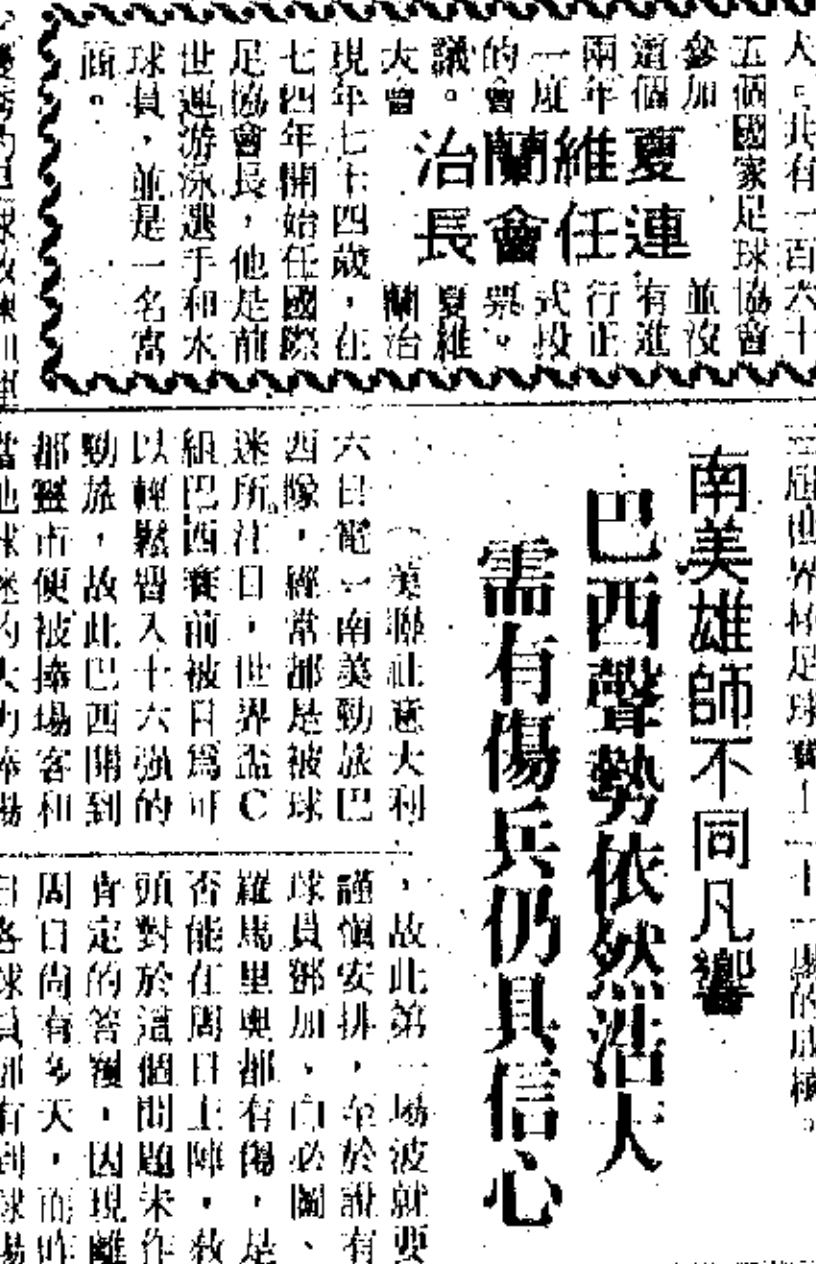 夏維蘭治
連任會長
人。共有一百六十
五個國家足球協會
參加
這個
兩年
一度
的會
議。
大會
並沒
有進
行正
式投
票。
夏維
蘭治
現年七十四歲，在
七四年開始任國際
足協會長，他是前
世運游泳選手和水
球員，並是一名富
商。
屆世界杯足球賽上
十一場的成績。
南美雄師不同凡響
巴西聲勢依然浩大
需有傷兵仍具信心
（美聯社意大利
六日電）南美勁旅巴
西隊，經常都是被球
迷所注目，世界盃C
組巴西賽前被目為可
以輕鬆晉入十六強的
勁旅，故此巴西開到
都靈市便被捧場客和
當地球迷的大力捧場
，故此第一場波就要
謹慎安排，至於說有
球員鄧加、白必圖、
羅馬里奧都有傷，是
否能在周日上陣，教
頭對於這個問題未作
肯定的答覆，因現離
周日尚有多天，而昨
日各球員都有到球場